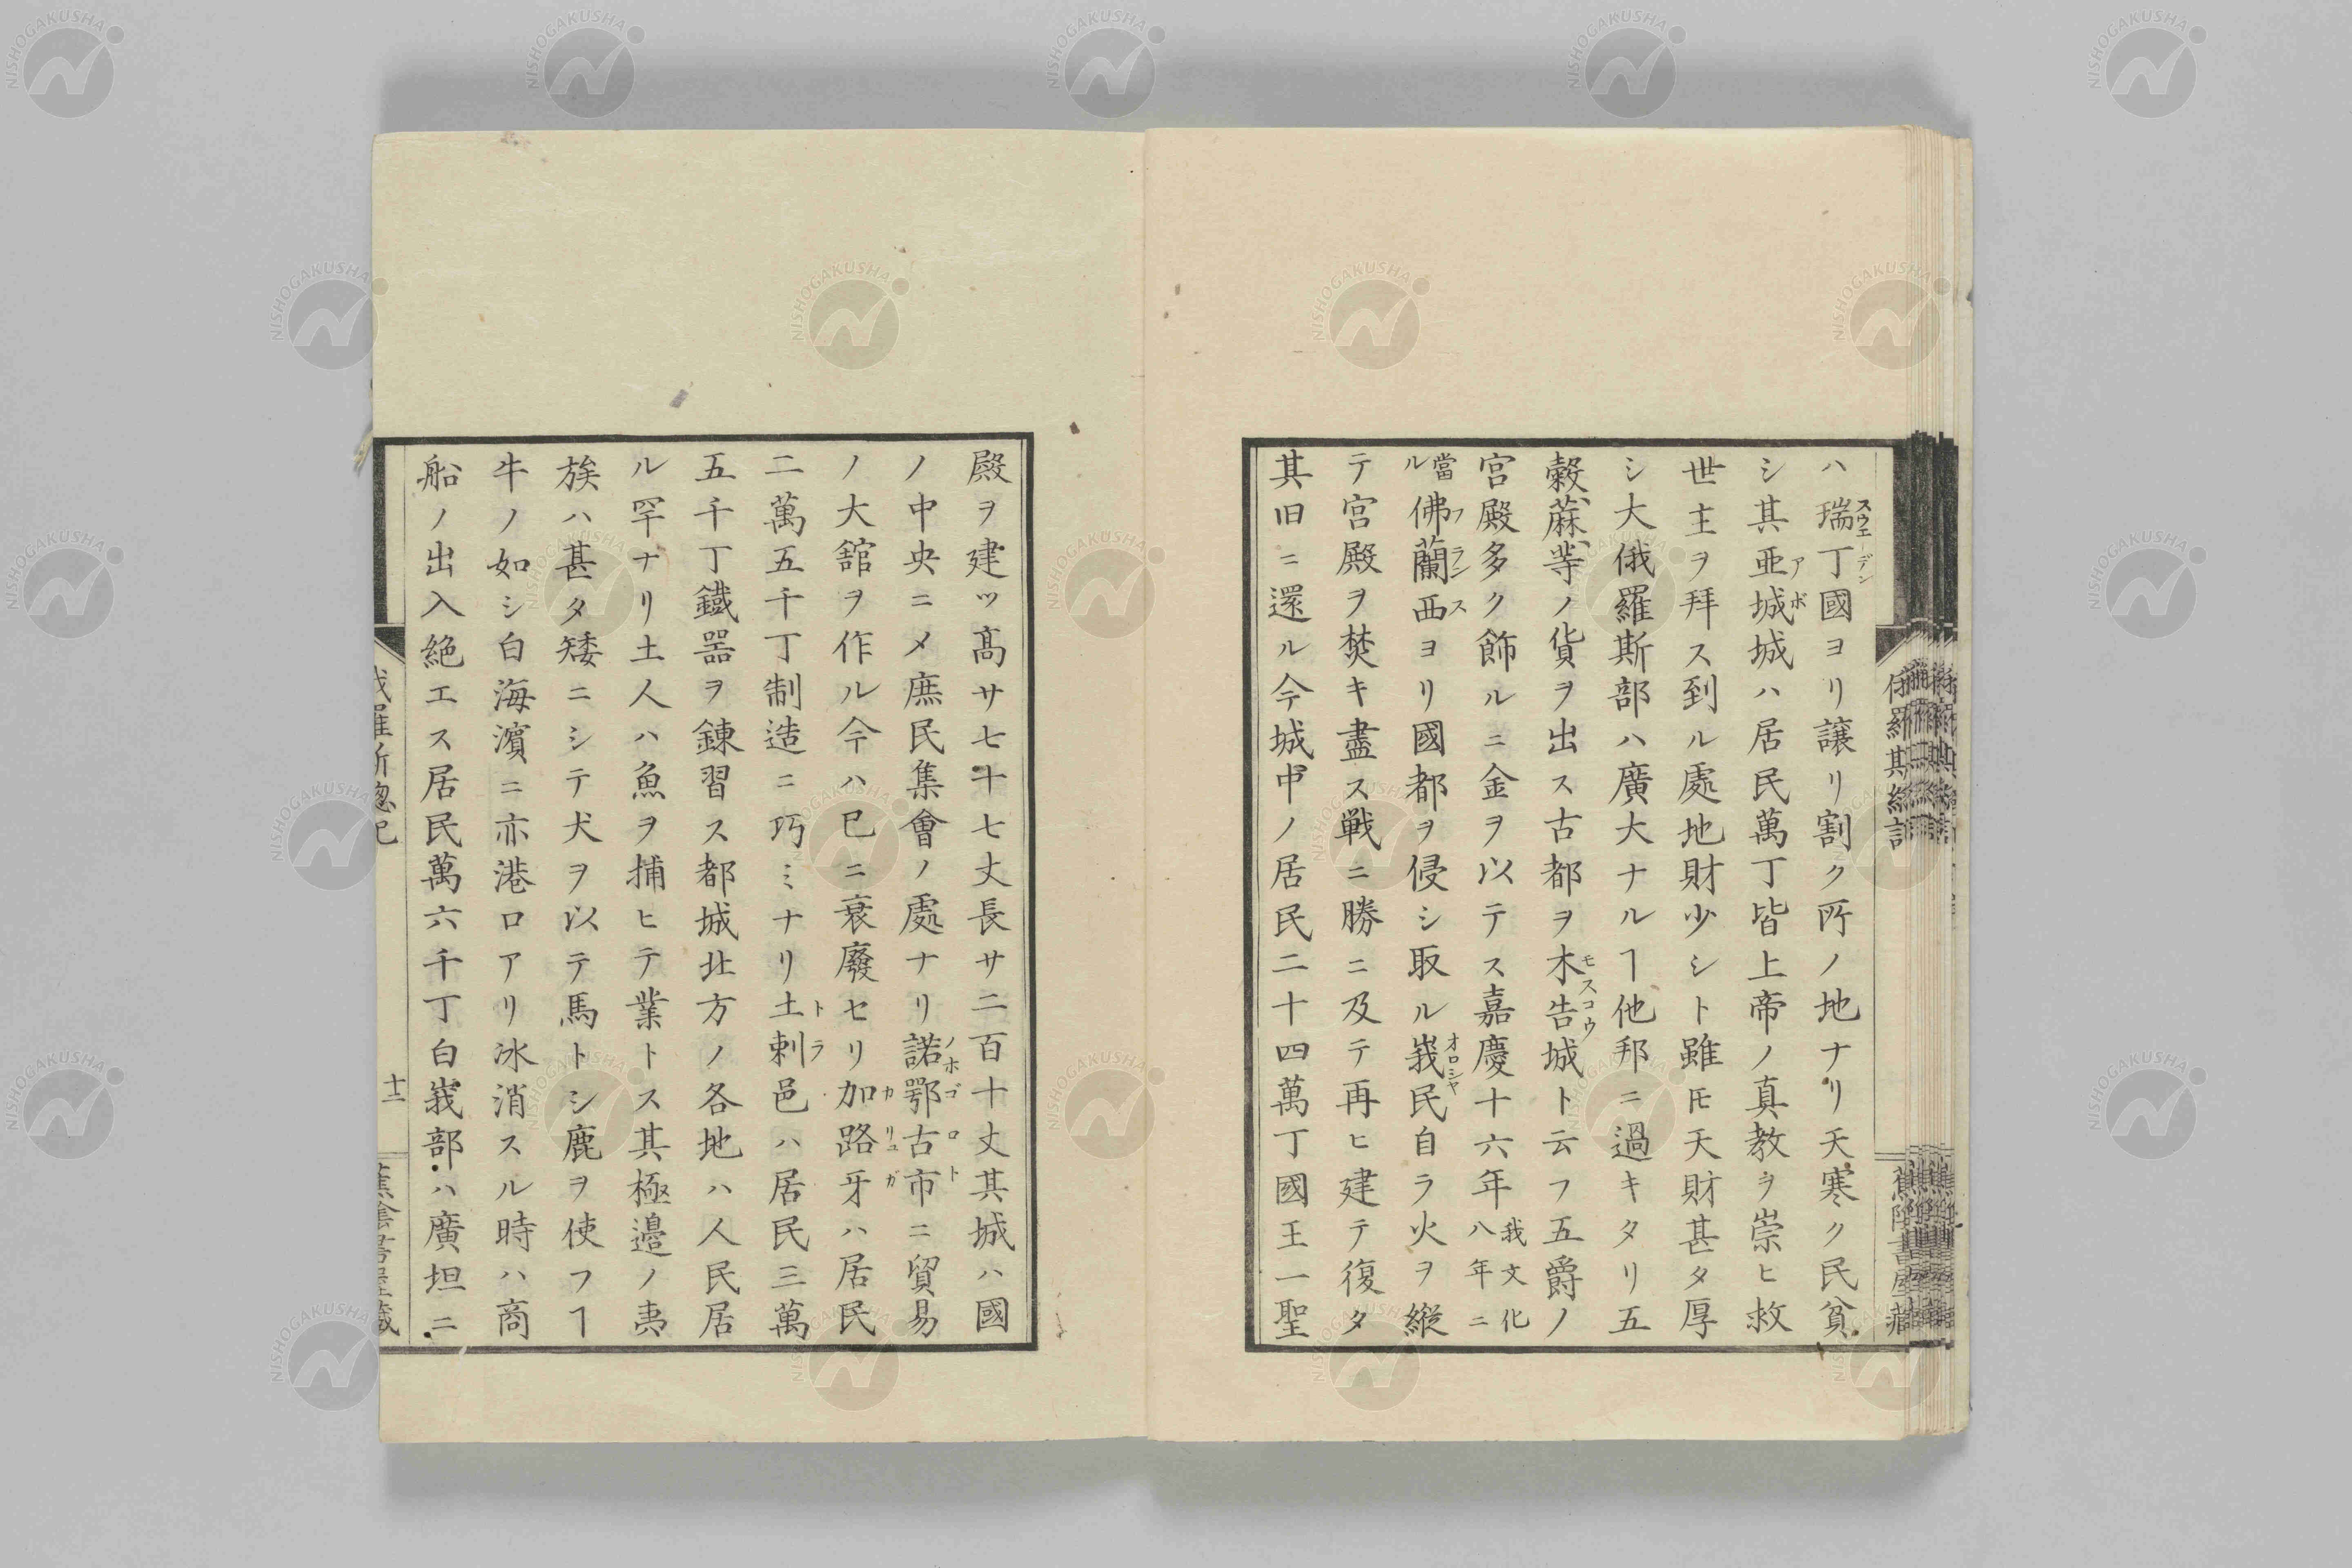 ハ瑞丁國ヨリ譲リ割ク所ノ地ナリ天寒ク民貧
スウエーデン
シ其亜城城ハ居民萬丁皆上帝ノ真教ヲ崇ヒ救
アボ
世主ヲ拜ス到ル處地財少シト雖㐧天財甚タ厚
シ大俄羅斯部ハ廣大ナルヿ他邦ニ過キタリ五
穀、蔴、等ノ貨ヲ出ス古都ヲ木告城ト云フ五爵ノ
モスコウ
宮殿多ク飾ルニ金ヲ以テス嘉慶十六年我文化八年ニ
當ル佛蘭西ヨリ國都ヲ侵シ取ル峩民自ラ火ヲ縱
フランス
オロシヤ
テ宮殿ヲ焚キ盡ス戦ニ勝ニ及テ再ヒ建テ復タ
其旧ニ還ル今城中ノ居民二十四萬丁國王一聖
殿ヲ建ツ髙サ七十七丈長サ二百十丈其城ハ國
ノ中央ニメ庶民集會ノ處ナリ諾鄂古市ニ貿易
ノホゴロト
ノ大舘ヲ作ル今ハ巳ニ衰廢セリ加路牙ハ居民
カリュガ
二萬五千丁制造ニ巧ミナリ土剌邑ハ居民三萬
トラ
五千丁鐵噐ヲ錬習ス都城北方ノ各地ハ人民居
ル罕ナリ土人ハ魚ヲ捕ヒテ業トス其極邉ノ夷
族ハ甚タ矮ニシテ犬ヲ以テ馬トシ鹿ヲ使フヿ
牛ノ如シ白海濱ニ亦港口アリ冰消スル時ハ商
船ノ出入絶エス居民萬六千丁白峩部ハ廣坦ニ
十二
NISHOGAKUSHA